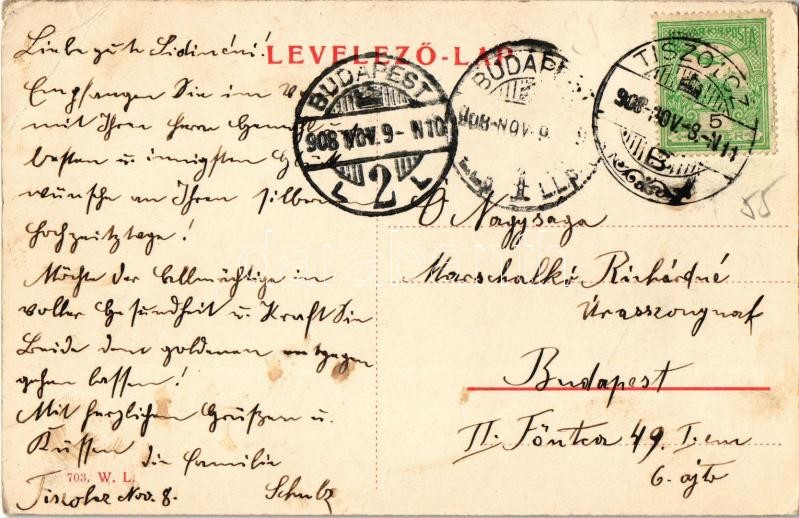 Liebe gute Lidinéni!
LEVELEZŐ-LAP
Empfangen Sie im V
mit Ihren Herrn Gema
besten u innigsten
wünsche an Ihrem silbernen
Hochzeitstage!
Möchte der Allmächtige in
voller Gesundheit u. Kraft Sie
Beide dem goldenen entgegen
gehen lassen!
Mit herzlichen Grüßen u.
Küssen
die Familie
Schulz
Tiszolcz Nov. 8.
703. W. L.
BUDAPEST
908 NOV. 9 - N 10
2
BUDAPEST
908-NOV-9
1
TISZOLCZ
908-NOV-8.-N 11
B
MAGYAR KIR. POSTA
5
Ő Nagysága
Marschalkó Richárdné
Úrasszonynak
Budapest
II. Főutca 49. I. em
6. ajtó
55
darabanth